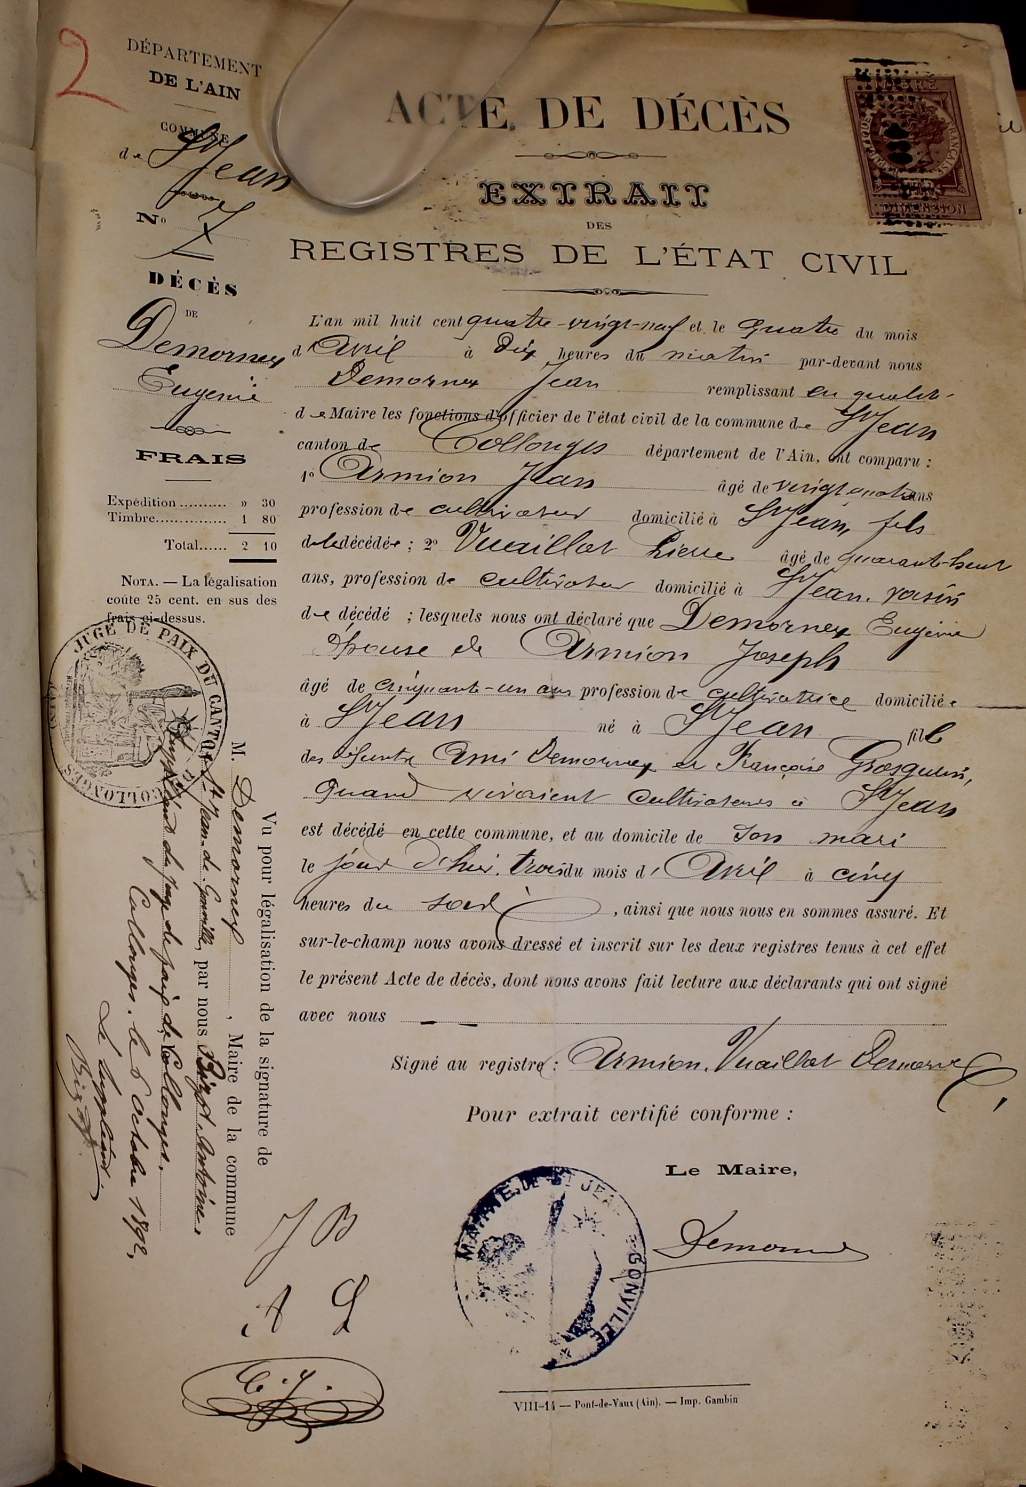 2
DÉPARTEMENT
DE L'AIN
COMMUNE
de St Jean
No 7
DÉCÈS
DE
Demornex
Eugénie
FRAIS
Expédition .......... » 30
Timbre............... 1 80
Total...... 2 10
NOTA. — La légalisation
coûte 25 cent. en sus des
frais ci-dessus.
JUGE DE PAIX DU CANTON
COLLONGES
ACTE DE DÉCÈS
EXTRAIT
DES
REGISTRES DE L'ÉTAT CIVIL
L'an mil huit cent quatre-vingt-neuf et le quatre du mois
d'Avril à dix heures du matin par-devant nous
Demornex Jean remplissant en qualité
de Maire les fonctions d'officier de l'état civil de la commune de St Jean
canton de Collonges département de l'Ain, ont comparu :
1o Armion Jean âgé de vingt quatre ans
profession de cultivateur domicilié à St Jean, fils
de la décédée ; 2o Vuaillat Pierre âgé de quarante-huit
ans, profession de cultivateur domicilié à St Jean. voisin
de décédé ; lesquels nous ont déclaré que Demornex Eugénie
Epouse de Armion Joseph
âgé de cinquante-un ans profession de cultivatrice domiciliée
à St Jean né à St Jean fille
des défunts Ami Demornex et Françoise
quand vivaient cultivateurs à St Jean
est décédé en cette commune, et au domicile de son mari
le jour d'hier, trois du mois d'Avril à cinq
heures du soir , ainsi que nous nous en sommes assuré. Et
sur-le-champ nous avons dressé et inscrit sur les deux registres tenus à cet effet
le présent Acte de décès, dont nous avons fait lecture aux déclarants qui ont signé
avec nous
Signé au registre : Armion. Vuaillat Demornex
Pour extrait certifié conforme :
Le Maire,
Demornex
MAIRIE DE ST JEAN DE GONVILLE
Vu pour légalisation de la signature de
M. Demornex, Maire de la commune
St Jean-de-Gonville, par nous Bizot Antoine,
suppléant du juge de paix de Collonges.
Collonges, le 6 Octobre 1892,
Le suppléant
Bizot
J B
A
C. J.
VIII-14 — Pont-de-Vaux (Ain). — Imp. Gambin